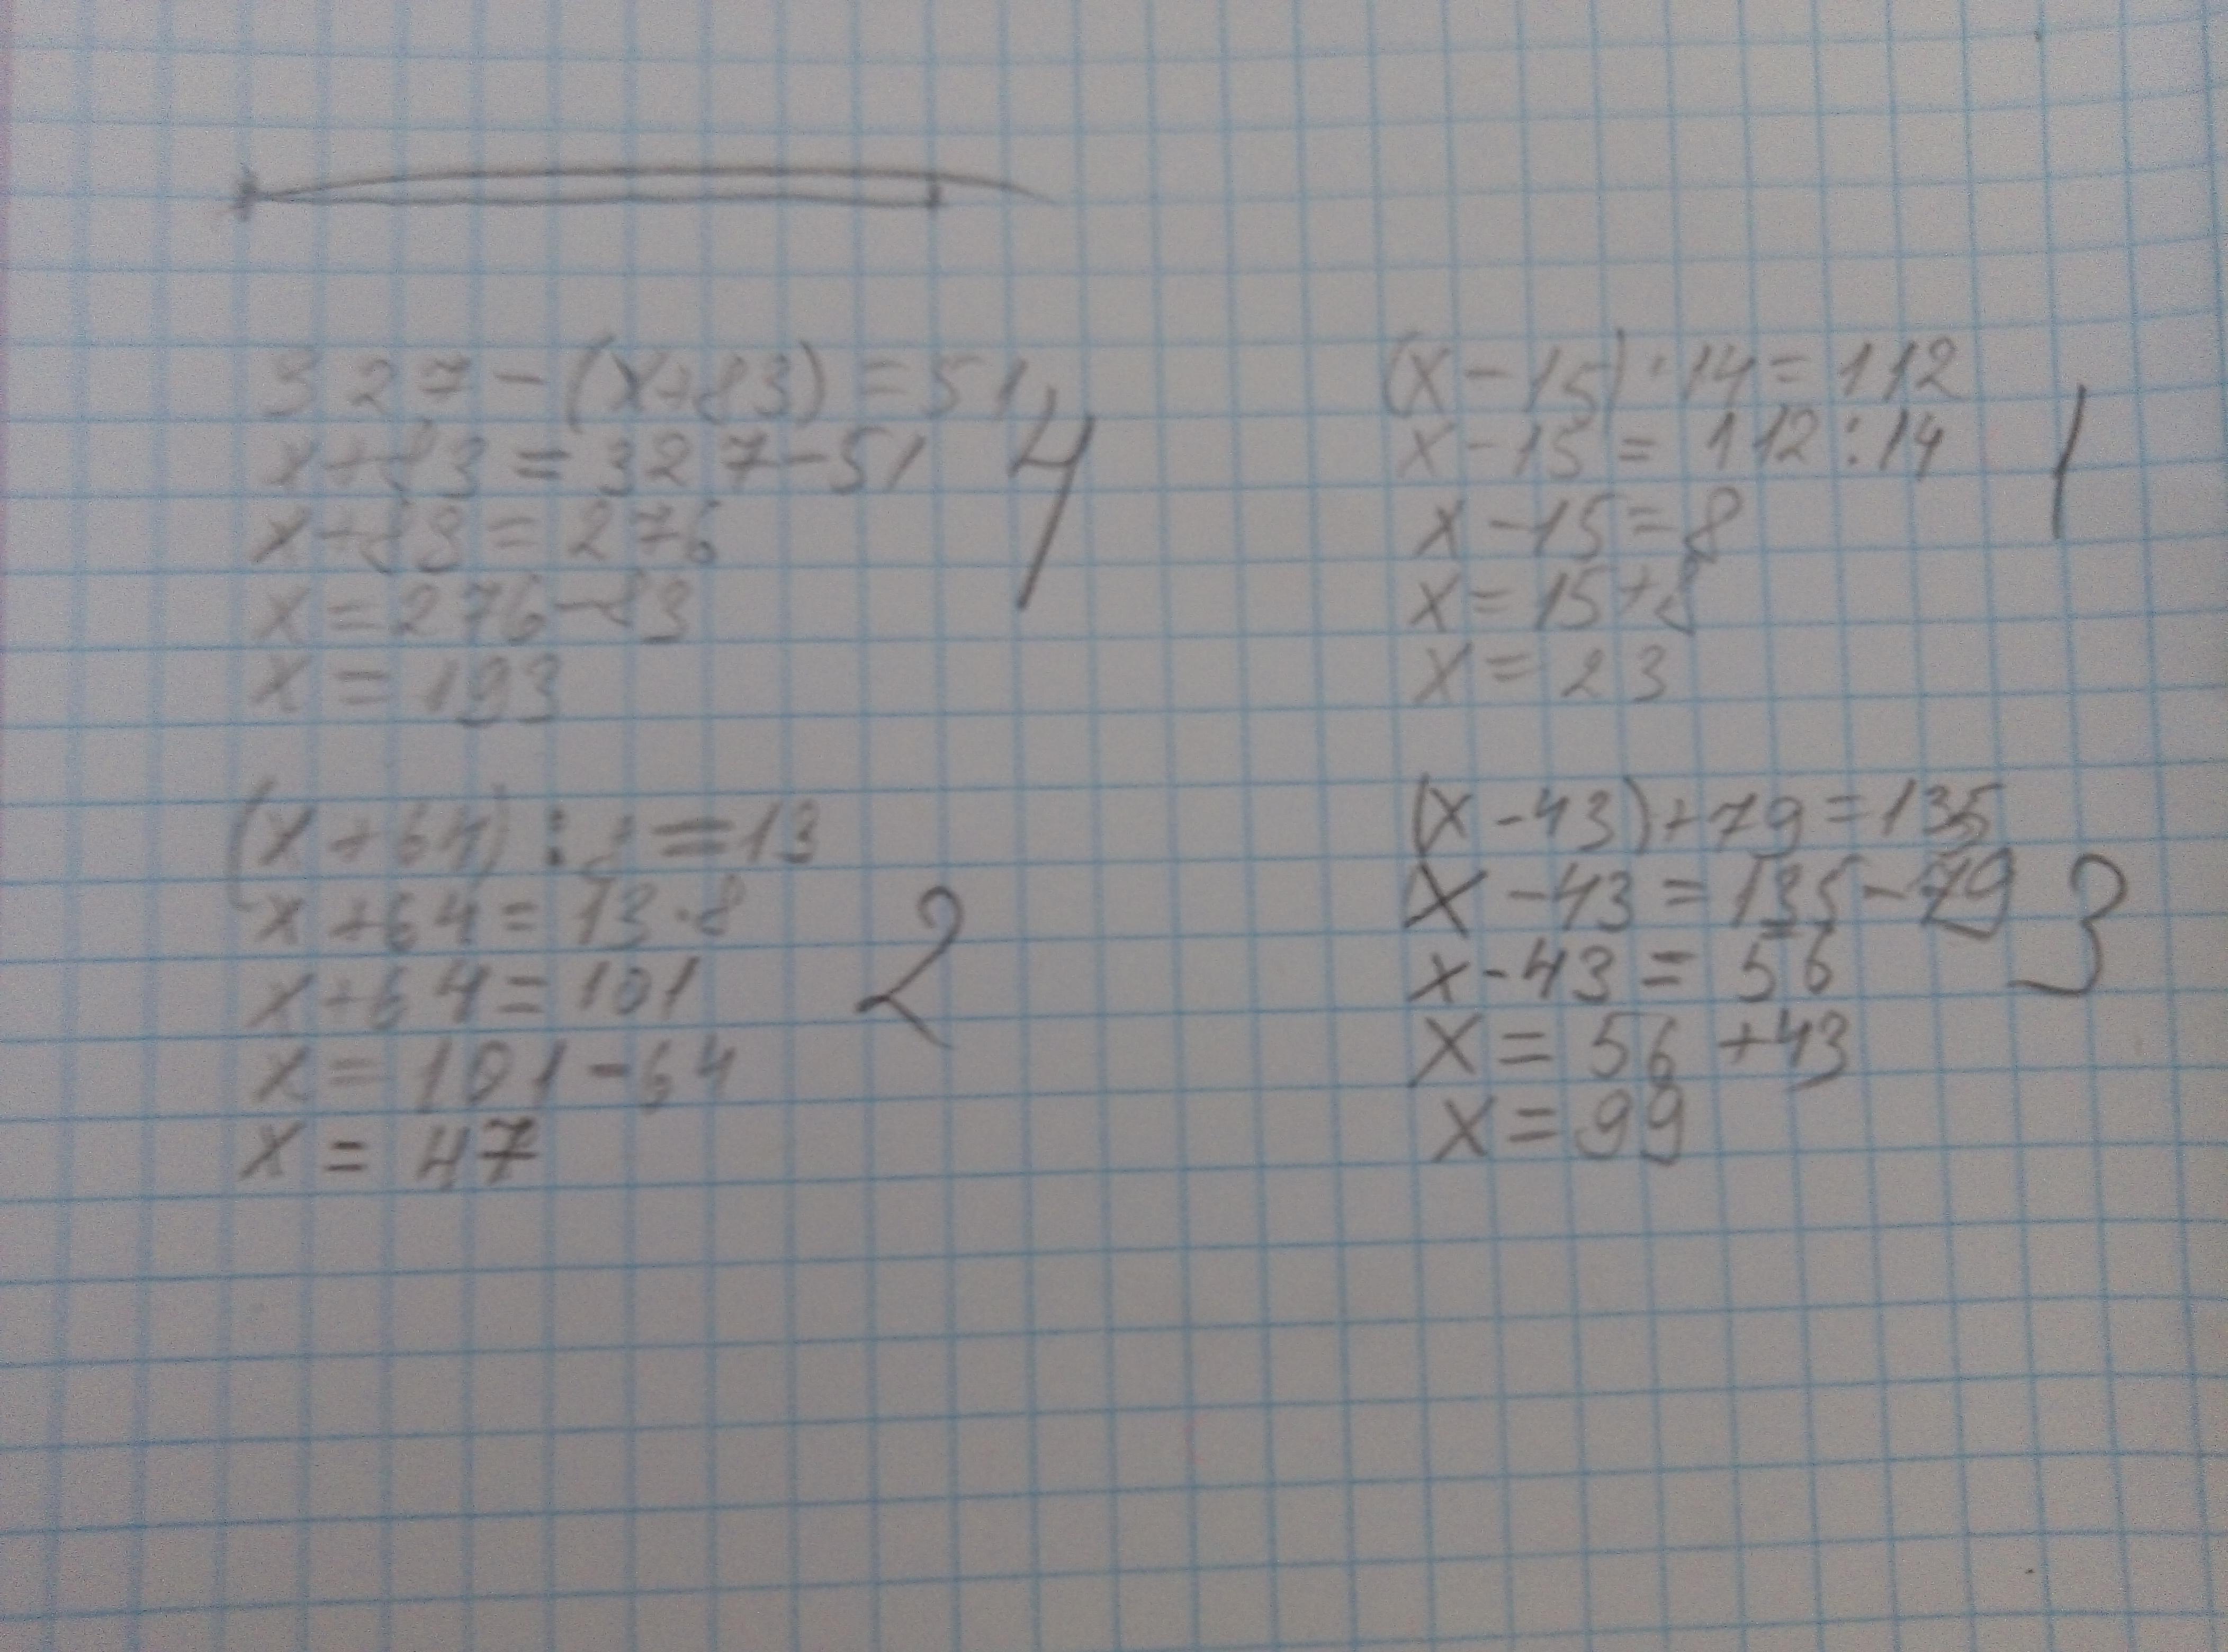 327-(x+83)=51
x+83=327-51
x+83=276
x=276-83
x=193
4
(x-15)·14=112
x-15=112:14
x-15=8
x=15+8
x=23
1
(x+64):8=13
x+64=13·8
x+64=101
x=101-64
x=47
2
(x-43)+79=135
x-43=135-79
x-43=56
x=56+43
x=99
3